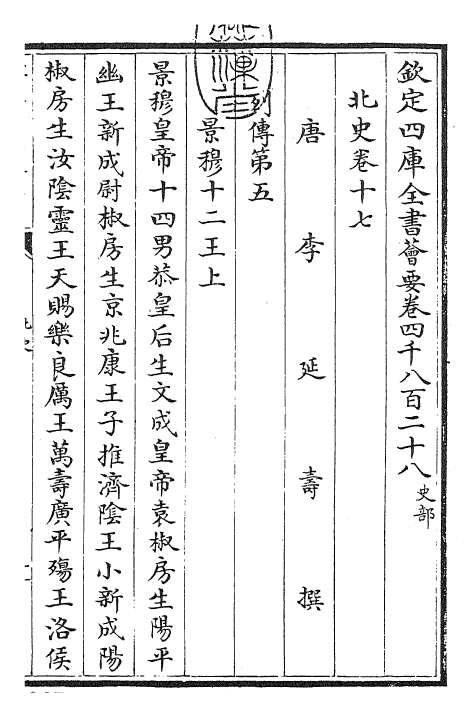 欽定四庫全書薈要卷四千八百二十八史部
北史卷十七
唐李延壽撰
列傳第五
景穆十二王上
景穆皇帝十四男恭皇后生文成皇帝袁椒房生陽平
幽王新成尉椒房生京兆康王子推濟陰王小新成陽
椒房生汝陰靈王天賜樂良厲王萬壽廣平殤王洛侯